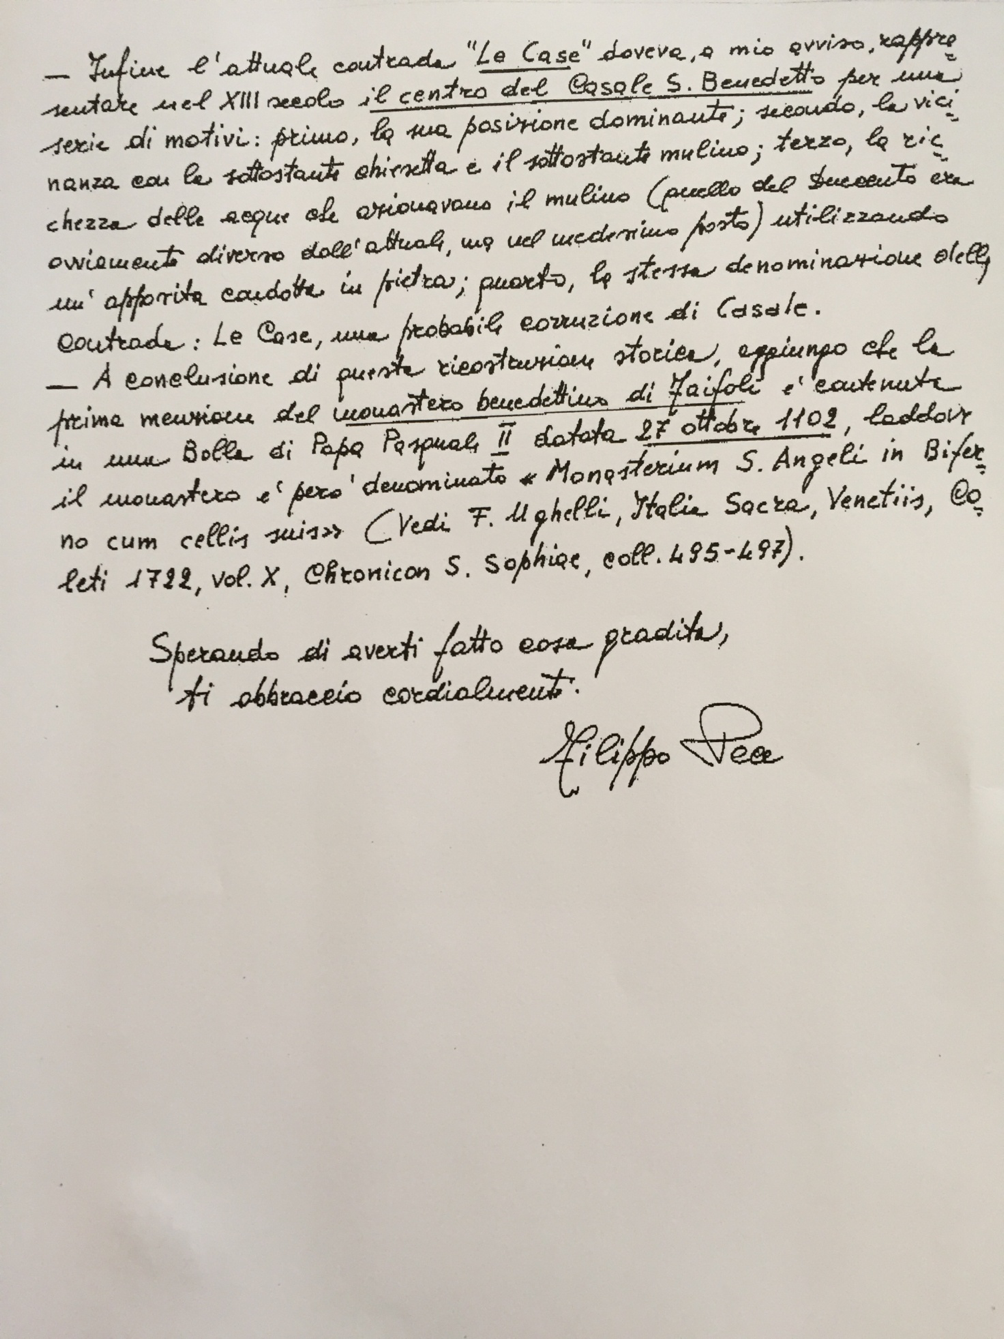 — Infine l'attuale contrada "Le Case" doveva, a mio avviso, rappre=
sentare nel XIII secolo il centro del Casale S. Benedetto per una
serie di motivi: primo, la sua posizione dominante; secondo, la vici=
nanza con la sottostante chiesetta e il sottostante mulino; terzo, la ric=
chezza delle acque che azionavano il mulino (quello del Duecento era
ovviamente diverso dall'attuale, ma nel medesimo posto) utilizzando
un'apposita condotta in pietra; quarto, la stessa denominazione della
contrada: Le Case, una probabile corruzione di Casale.
— A conclusione di questa ricostruzione storica, aggiungo che la
prima menzione del monastero benedettino di Faifoli è contenuta
in una Bolla di Papa Pasquale II datata 27 ottobre 1102, laddove
il monastero è però denominato « Monasterium S. Angeli in Bifer=
no cum cellis suis» (Vedi F. Ughelli, Italia Sacra, Venetiis, Co=
leti 1722, vol. X, Chronicon S. Sophiae, coll. 495-497).
Sperando di averti fatto cosa gradita,
ti abbraccio cordialmente.
Filippo